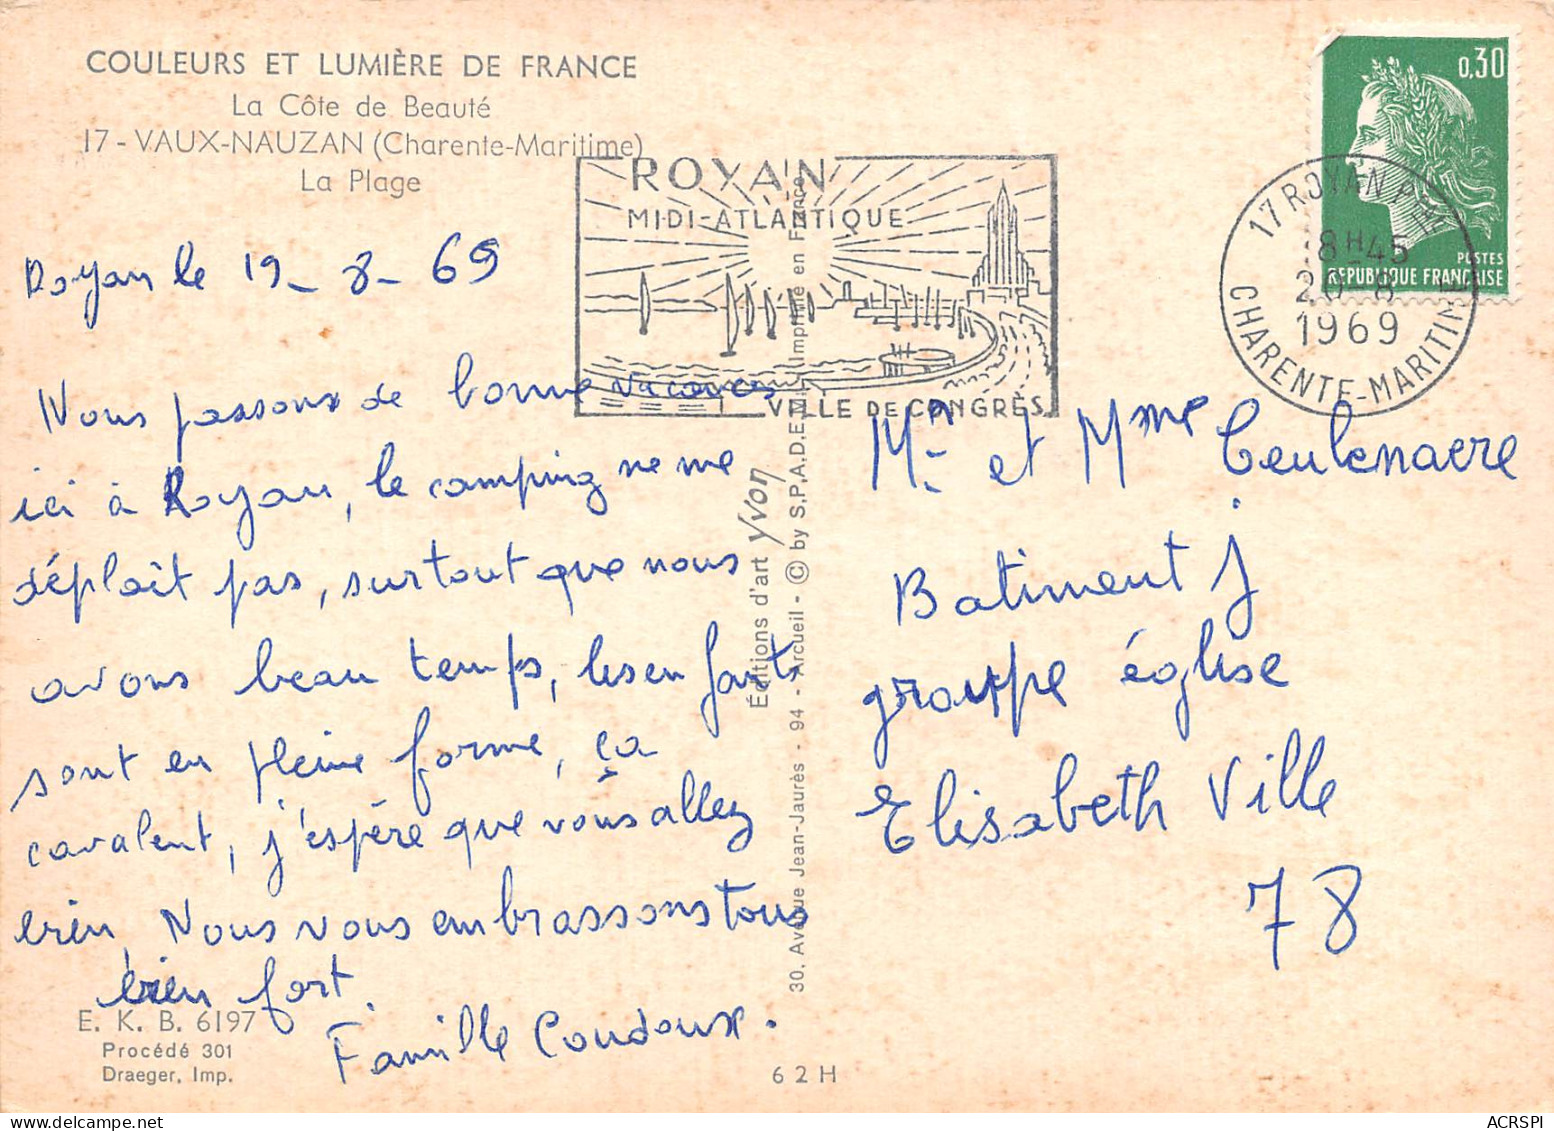 COULEURS ET LUMIÈRE DE FRANCE
La Côte de Beauté
17 - VAUX-NAUZAN (Charente-Maritime)
La Plage
Royan le 19 - 8 - 69
Nous passons de bonne vacances
ici à Royan, le camping ne me
déplait pas, surtout que nous
avons beau temps, les enfants
sont en pleine forme, ça
cavalent, j'espère que vous allez
bien, Nous vous embrassons tous
bien fort.
Famille Coudoux.
E. K. B. 6197
Procédé 301
Draeger, Imp.
ROYAN
MIDI-ATLANTIQUE
VILLE DE CONGRÈS
Éditions d'art Yvon
30, Avenue Jean-Jaurès - 94 - Arcueil - © by S.P.A.D.E.M. Imprimé en France
62H
0,30
POSTES
REPUBLIQUE FRANÇAISE
17 ROYAN
8H45
20-8
1969
CHARENTE-MARITIME
Mr. et Mme Ceulenaere
Batiment J
groupe église
Elisabeth Ville
78
ACRSPI